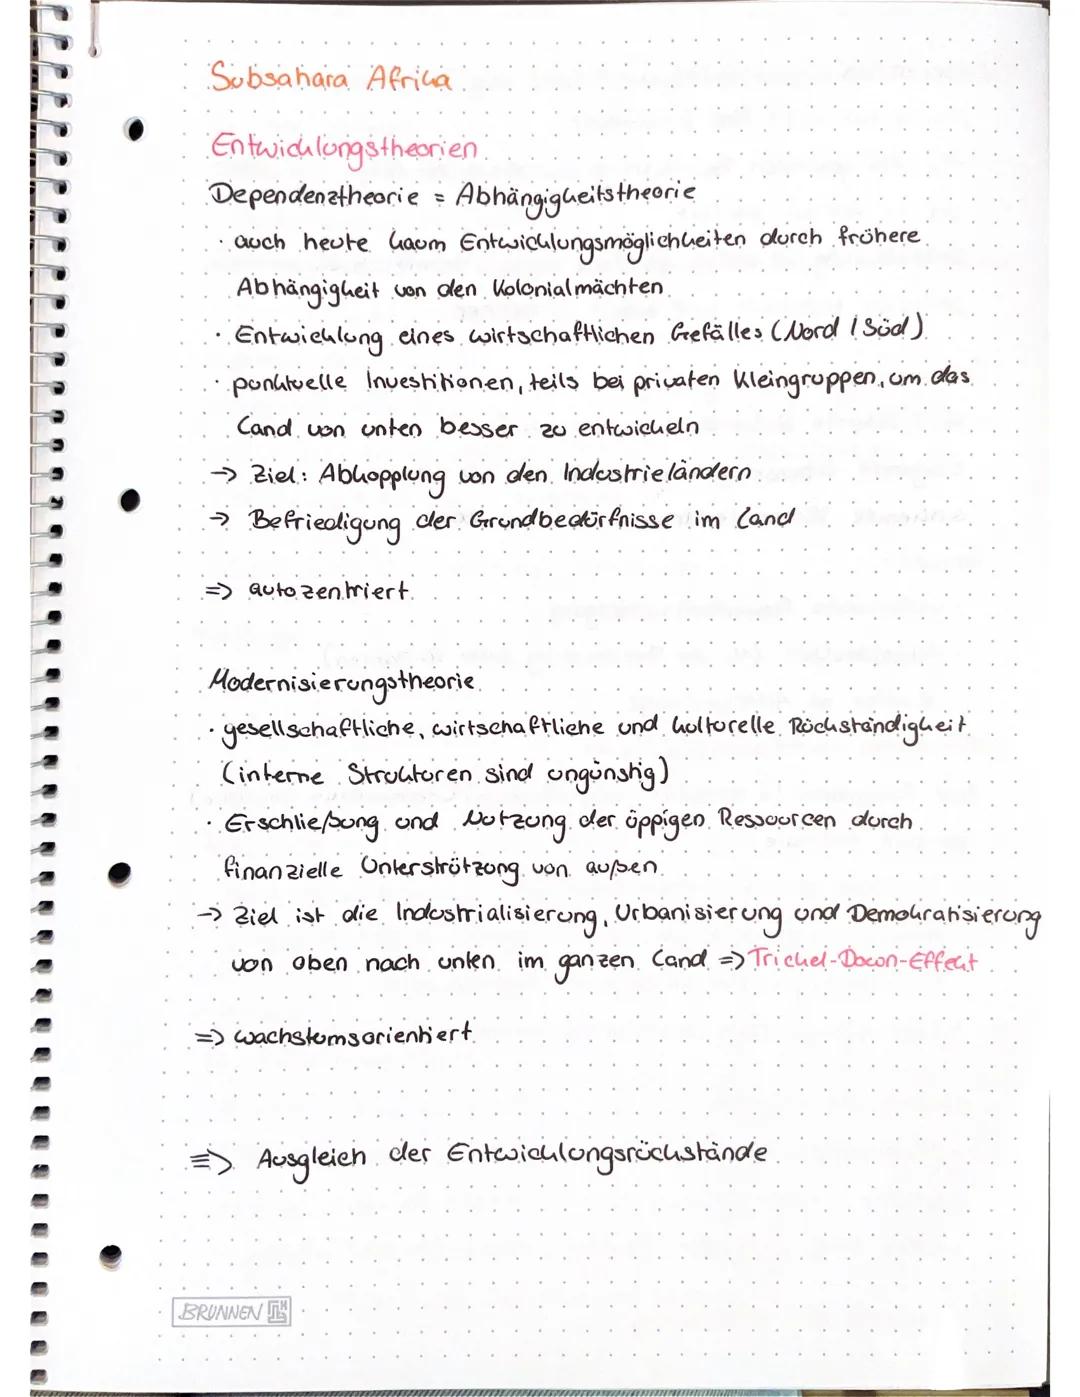 Subsahara Afrika
Entwicklungstheorien
Dependenztheorie = Abhängigkeitstheorie
· auch heute kaum Entwicklungsmöglichkeiten durch frühere
Abhängigkeit von den Kolonialmächten
· Entwicklung eines wirtschaftlichen Gefälles (Nord / Süd)
· punktuelle Investitionen, teils bei privaten Kleingruppen, um das
Land von unten besser zu entwickeln
→ Ziel: Abkopplung von den Industrieländern
→ Befriedigung der Grundbedürfnisse im Land
=> autozentriert
Modernisierungstheorie
· gesellschaftliche, wirtschaftliche und kulturelle Rückständigkeit
(interne Strukturen sind ungünstig)
· Erschließung und Nutzung der üppigen Ressourcen durch
finanzielle Unterstrützung von außen
→ Ziel ist die Industrialisierung, Urbanisierung und Demokratisierung
von oben nach unten im ganzen Land => Trickel-Down-Effekt
=> wachstumsorientiert
≡> Ausgleich der Entwicklungsrückstände
BRUNNEN